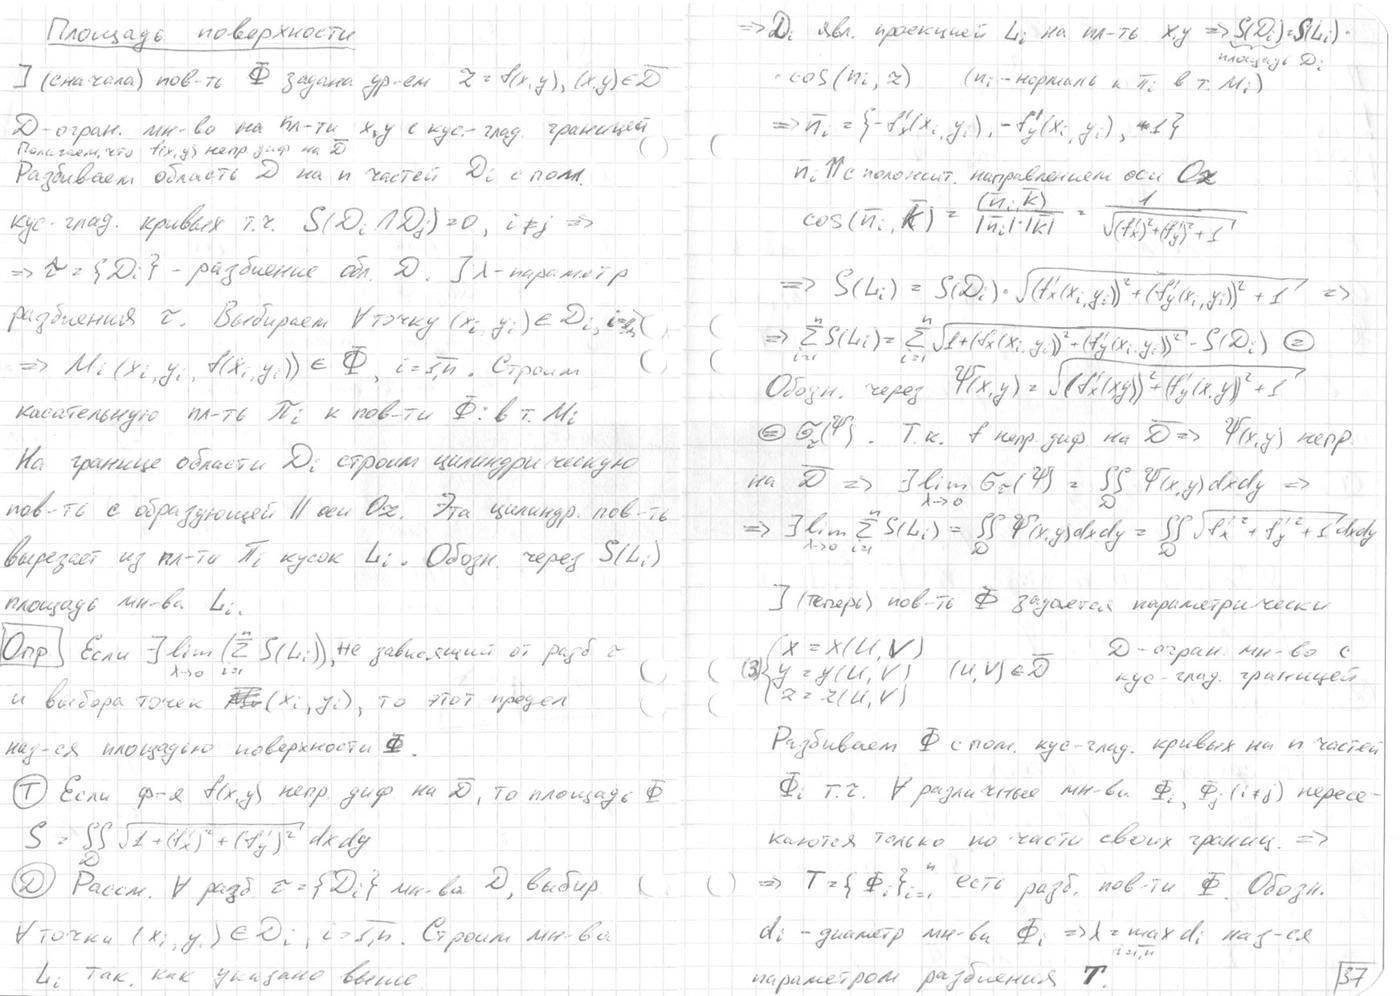 Площадь поверхности
∃ (сначала) пов-ть Φ задана ур-ем z = f(x,y), (x,y)∈D̅
D-огран. мн-во на пл-ти x,y с кус.-глад. границей
Полагаем, что f(x,y) непр диф на D̅
Разбиваем область D на n частей Di с пом.
кус-глад. кривых т.ч. S(Di ∩ Dj)=0, i≠j ⇒
⇒ τ = {Di} - разбиение обл. D. ∃ λ-параметр
разбиения τ. Выбираем ∀ точку (xi, yi) ∈ Di, i=1,n
⇒ Mi (xi, yi, f(xi, yi)) ∈ Φ, i=1,n. Строим
касательную пл-ть Πi к пов-ти Φ: в т. Mi
На границе области Di строим цилиндрическую
пов-ть с образующей || оси Oz. Эта цилиндр. пов-ть
вырезает из пл-ти Πi кусок Li. Обозн. через S(Li)
площадь мн-ва Li.
Опр Если ∃ lim λ→0 (∑ i=1 n S(Li)), не зависящий от разб τ
и выбора точек (xi, yi), то этот предел
наз-ся площадью поверхности Φ.
(Т) Если ф-я f(x,y) непр. диф на D̅, то площадь Φ
S = ∬D √(1+(f'x)²+(f'y)²) dxdy
(D) Рассм. ∀ разб τ = {Di} мн-ва D, выбир
∀ точки (xi, yi) ∈ Di, i=1,n. Строим мн-ва
Li так, как указано выше
⇒ Di явл. проекцией Li на пл-ть x,y ⇒ S(Di)=S(Li)·
площадь Di
· cos(ni, z) (ni - нормаль к Πi в т. Mi)
⇒ n̅i = {-f'x(xi, yi), -f'y(xi, yi), 1}
n̅i ⇈ с положит. направлением оси Oz
cos(n̅i, k̅) = (n̅i, k̅) / |n̅i|·|k̅| = 1 / √((f'x)²+(f'y)²+1)
⇒ S(Li) = S(Di) · √((f'x(xi, yi))²+(f'y(xi, yi))²+1) ⇒
⇒ ∑ i=1 n S(Li) = ∑ i=1 n √(1+(f'x(xi, yi))²+(f'y(xi, yi))²) · S(Di) ⊜
Обозн. через Ψ(x,y) = √((f'x(x,y))²+(f'y(x,y))²+1)
⊜ στ(Ψ). Т.к. f непр. диф на D̅ ⇒ Ψ(x,y) непр.
на D̅ ⇒ ∃ lim λ→0 στ(Ψ) = ∬D Ψ(x,y)dxdy ⇒
⇒ ∃ lim λ→0 ∑ i=1 n S(Li) = ∬D Ψ(x,y)dxdy = ∬D √(f'x²+f'y²+1) dxdy
∃ (теперь) пов-ть Φ задается параметрически
(3) { x = x(U,V)
y = y(U,V) (U,V)∈D̅
z = z(U,V)
D-огран. мн-во с
кус-глад. границей
Разбиваем Φ с пом. кус-глад. кривых на n частей
Φi т.ч. ∀ различные мн-ва Φi, Φj (i≠j) пересе-
каются только по части своих границ. ⇒
⇒ T = {Φi} i=1 n есть разб. пов-ти Φ. Обозн.
di - диаметр мн-ва Φi ⇒ λ = max i=1,n di наз-ся
параметром разбиения T.
37